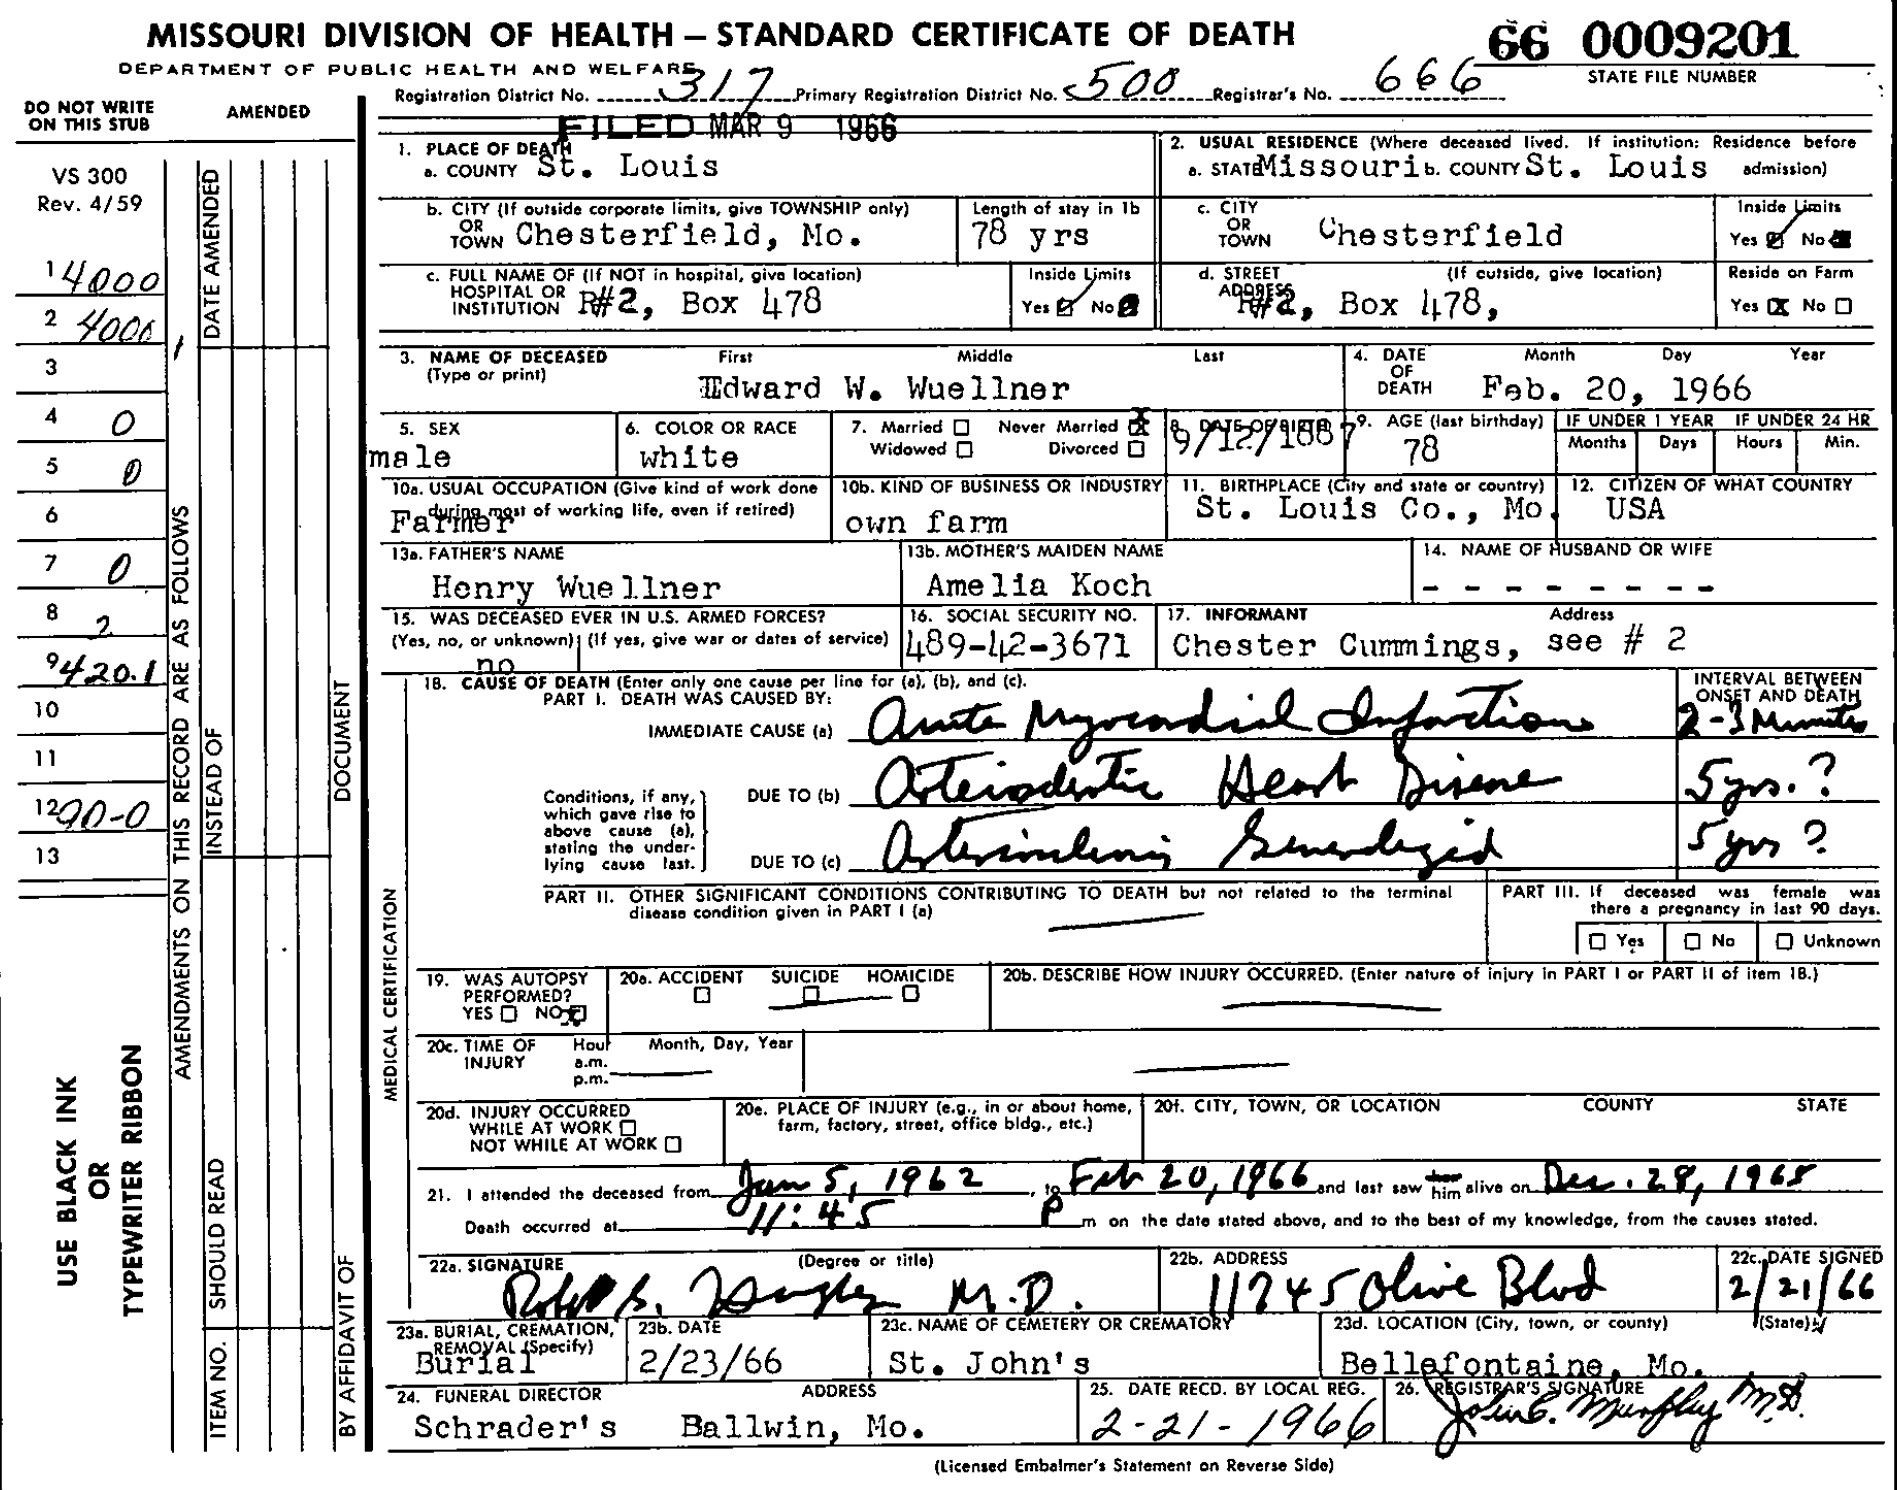 MISSOURI DIVISION OF HEALTH — STANDARD CERTIFICATE OF DEATH
66 0009201
DEPARTMENT OF PUBLIC HEALTH AND WELFARE
STATE FILE NUMBER
Registration District No. 317 Primary Registration District No. 500 Registrar's No. 666
DO NOT WRITE ON THIS STUB
AMENDED
FILED MAR 9 1966
VS 300
Rev. 4/59
1 4000
2 4006
3
4 0
5 0
6
7 0
8 2
9 420.1
10
11
12 90-0
13
USE BLACK INK
OR
TYPEWRITER RIBBON
AMENDMENTS ON THIS RECORD ARE AS FOLLOWS
DATE AMENDED
INSTEAD OF
SHOULD READ
ITEM NO.
DOCUMENT
BY AFFIDAVIT OF
1. PLACE OF DEATH
a. COUNTY St. Louis
2. USUAL RESIDENCE (Where deceased lived. If institution: Residence before admission)
a. STATE Missouri b. COUNTY St. Louis
b. CITY (If outside corporate limits, give TOWNSHIP only)
OR
TOWN Chesterfield, Mo.
Length of stay in 1b
78 yrs
c. CITY
OR
TOWN Chesterfield
Inside Limits
Yes No
c. FULL NAME OF (If NOT in hospital, give location)
HOSPITAL OR
INSTITUTION R#2, Box 478
Inside Limits
Yes No
d. STREET ADDRESS (If outside, give location)
R#2, Box 478,
Reside on Farm
Yes X No
3. NAME OF DECEASED
(Type or print)
First Middle Last
Edward W. Wuellner
4. DATE OF DEATH
Month Day Year
Feb. 20, 1966
5. SEX
male
6. COLOR OR RACE
white
7. Married Never Married X
Widowed Divorced
8. DATE OF BIRTH
9/12/1887
9. AGE (last birthday)
78
IF UNDER 1 YEAR IF UNDER 24 HR
Months Days Hours Min.
10a. USUAL OCCUPATION (Give kind of work done
during most of working life, even if retired)
Farmer
10b. KIND OF BUSINESS OR INDUSTRY
own farm
11. BIRTHPLACE (City and state or country)
St. Louis Co., Mo.
12. CITIZEN OF WHAT COUNTRY
USA
13a. FATHER'S NAME
Henry Wuellner
13b. MOTHER'S MAIDEN NAME
Amelia Koch
14. NAME OF HUSBAND OR WIFE
- - - - - - - -
15. WAS DECEASED EVER IN U.S. ARMED FORCES?
(Yes, no, or unknown) (If yes, give war or dates of service)
no
16. SOCIAL SECURITY NO.
489-42-3671
17. INFORMANT Address
Chester Cummings, see # 2
MEDICAL CERTIFICATION
18. CAUSE OF DEATH (Enter only one cause per line for (a), (b), and (c).
PART I. DEATH WAS CAUSED BY:
INTERVAL BETWEEN
ONSET AND DEATH
IMMEDIATE CAUSE (a) Acute Myocardial Infarction 2-3 Minutes
Conditions, if any,
which gave rise to
above cause (a),
stating the under-
lying cause last.
DUE TO (b) Arteriosclerotic Heart Disease 5 yrs. ?
DUE TO (c) Arteriosclerosis Generalized 5 yrs ?
PART II. OTHER SIGNIFICANT CONDITIONS CONTRIBUTING TO DEATH but not related to the terminal
disease condition given in PART I (a)
PART III. If deceased was female was
there a pregnancy in last 90 days.
Yes No Unknown
19. WAS AUTOPSY
PERFORMED?
YES NO X
20a. ACCIDENT SUICIDE HOMICIDE
20b. DESCRIBE HOW INJURY OCCURRED. (Enter nature of injury in PART I or PART II of item 18.)
20c. TIME OF INJURY
Hour Month, Day, Year
a.m.
p.m.
20d. INJURY OCCURRED
WHILE AT WORK
NOT WHILE AT WORK
20e. PLACE OF INJURY (e.g., in or about home,
farm, factory, street, office bldg., etc.)
20f. CITY, TOWN, OR LOCATION COUNTY STATE
21. I attended the deceased from Jan 5, 1962, to Feb 20, 1966 and last saw her him alive on Dec. 28, 1965
Death occurred at 11:45 P m on the date stated above, and to the best of my knowledge, from the causes stated.
22a. SIGNATURE (Degree or title)
M.D.
22b. ADDRESS
11745 Olive Blvd
22c. DATE SIGNED
2/21/66
23a. BURIAL, CREMATION,
REMOVAL (Specify)
Burial
23b. DATE
2/23/66
23c. NAME OF CEMETERY OR CREMATORY
St. John's
23d. LOCATION (City, town, or county) (State)
Bellefontaine, Mo.
24. FUNERAL DIRECTOR ADDRESS
Schrader's Ballwin, Mo.
25. DATE RECD. BY LOCAL REG.
2-21-1966
26. REGISTRAR'S SIGNATURE
John C. Murphy M.D.
(Licensed Embalmer's Statement on Reverse Side)